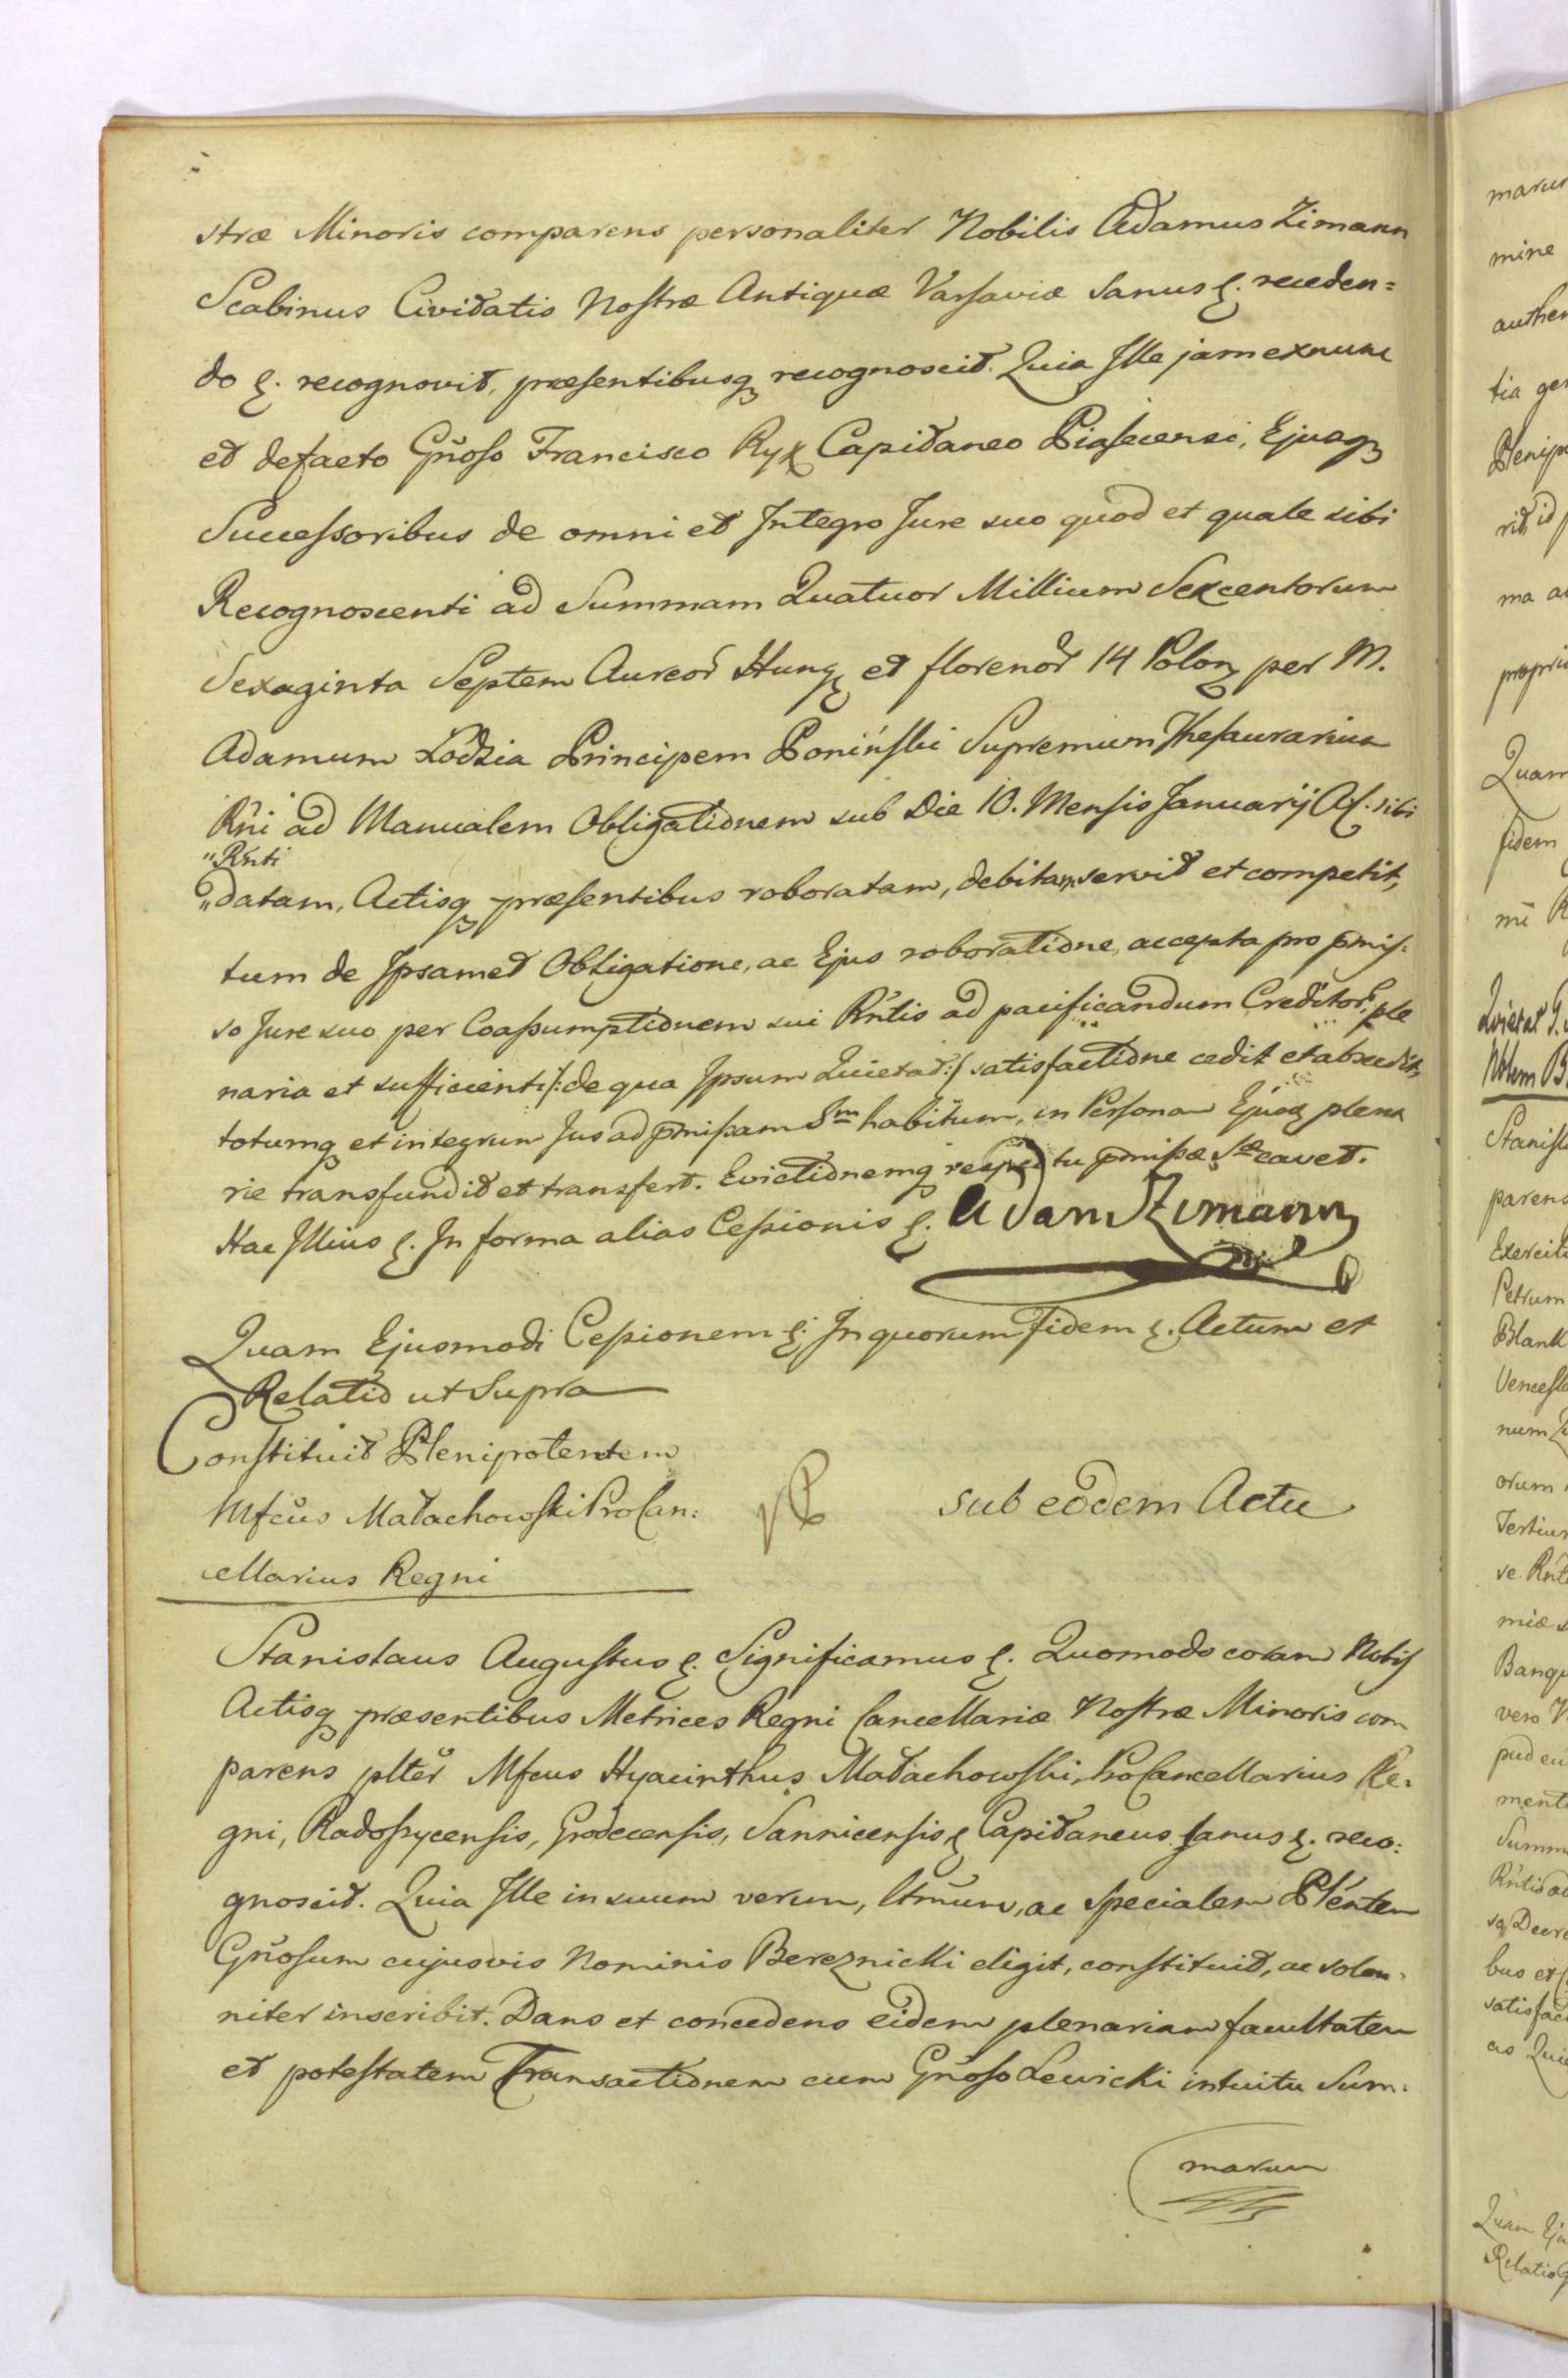 stræ Minoris comparens personaliter Nobilis Adamus Zimann
Scabinus Civitatis Nostræ Antiquæ Varsaviæ Sanus &. receden=
do &. recognovit, præsentibusq recognoscit. Quia Ille jam exnunc
et defacto Gñoso Francisco Ryx Capitaneo Piasecensi, Ejusq
Successoribus de omni et Integro Jure suo quod et quale sibi
Recognoscenti ad Summam Quatuor Millium Sexcentorum
Sexaginta Septem Aureor Hung et florenor 14 Polon per M.
Adamum Lodzia Principem Poniński Supremum Thesaurarium
Rñi ad Manualem Obligationem sub Die 10. Mensis Januarij Af. sibi
"Rnti
"datam, Actisq præsentibus roboratam, debitam servit et competit,
tum de Ipsamet Obligatione, ac Ejus roboratione, accepta pro pmis:
so Jure suo per Coassumptionem sui Rñtis ad pacificandum Creditor: ple
naria et sufficienti/: de qua Ipsum Quietat :/ satisfactione cedit et abscedit,
totumq et integrum Jus ad pmissam Sm habitum, in Personam Ejusq plena
rie transfundit et transfert. Evictionemq respectu pmissæ Sæ cavet.
Hac Illius &. In forma alias Cessionis &. Adam Zimann
Quam Ejusmodi Cessionem &. In quorum fidem &. Actum et
Relatio ut Supra
Constituit Plenipotentem
Mfcus Małachowski ProCan:
cellarius Regni
sub eodem Actu
Stanislaus Augustus &. Significamus &. Quomodo coram Nobis
Actisq præsentibus Metrices Regni Cancellariæ Nostræ Minoris com
parens plter Mfcus Hyacinthus Małachowski, ProCancellarius Re:
gni, Radoszycensis, Grodecensis, Sannicensis & Capitaneus sanus &. reco:
gnoscit. Quia Ille in suum verum, ltmum, ac specialem Plentem
Gñosum cujusvis Nominis Bereznicki eligit, constituit, ac solen:
niter inscribit. Dans et concedens eidem plenariam facultatem
et potestatem Transactionem cum Gñoso Lewicki intuitu Sum:
marum